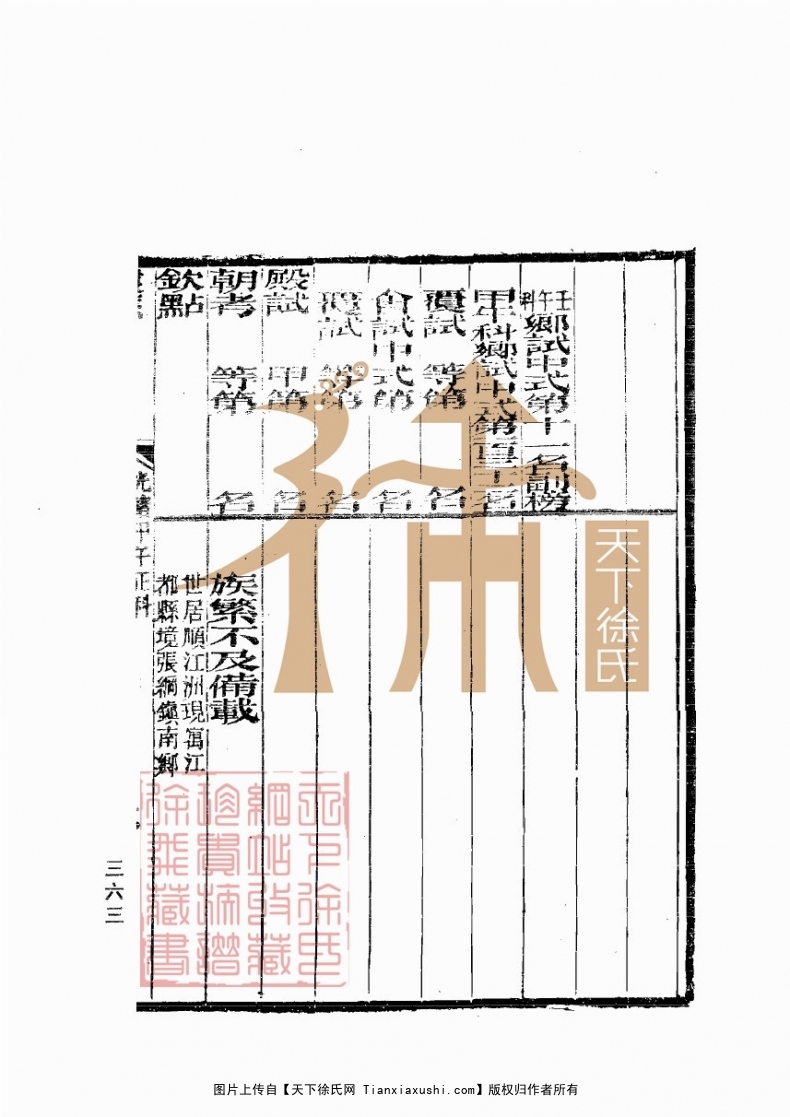 壬午科鄉試中式第十一名副榜
甲午科鄉試中式第 名
覆試 等第 名
會試中式第 名
覆試 等第 名
殿試 甲第 名
朝考 等第 名
欽點
族繁不及備載
世居順江洲現寓江
都縣境張綱鎮南鄉
光緒甲午正科
三六三
天下徐氏
天下徐氏
網站收藏
珍貴 譜
徐 藏書
图片上传自【天下徐氏网 Tianxiaxushi.com】版权归作者所有